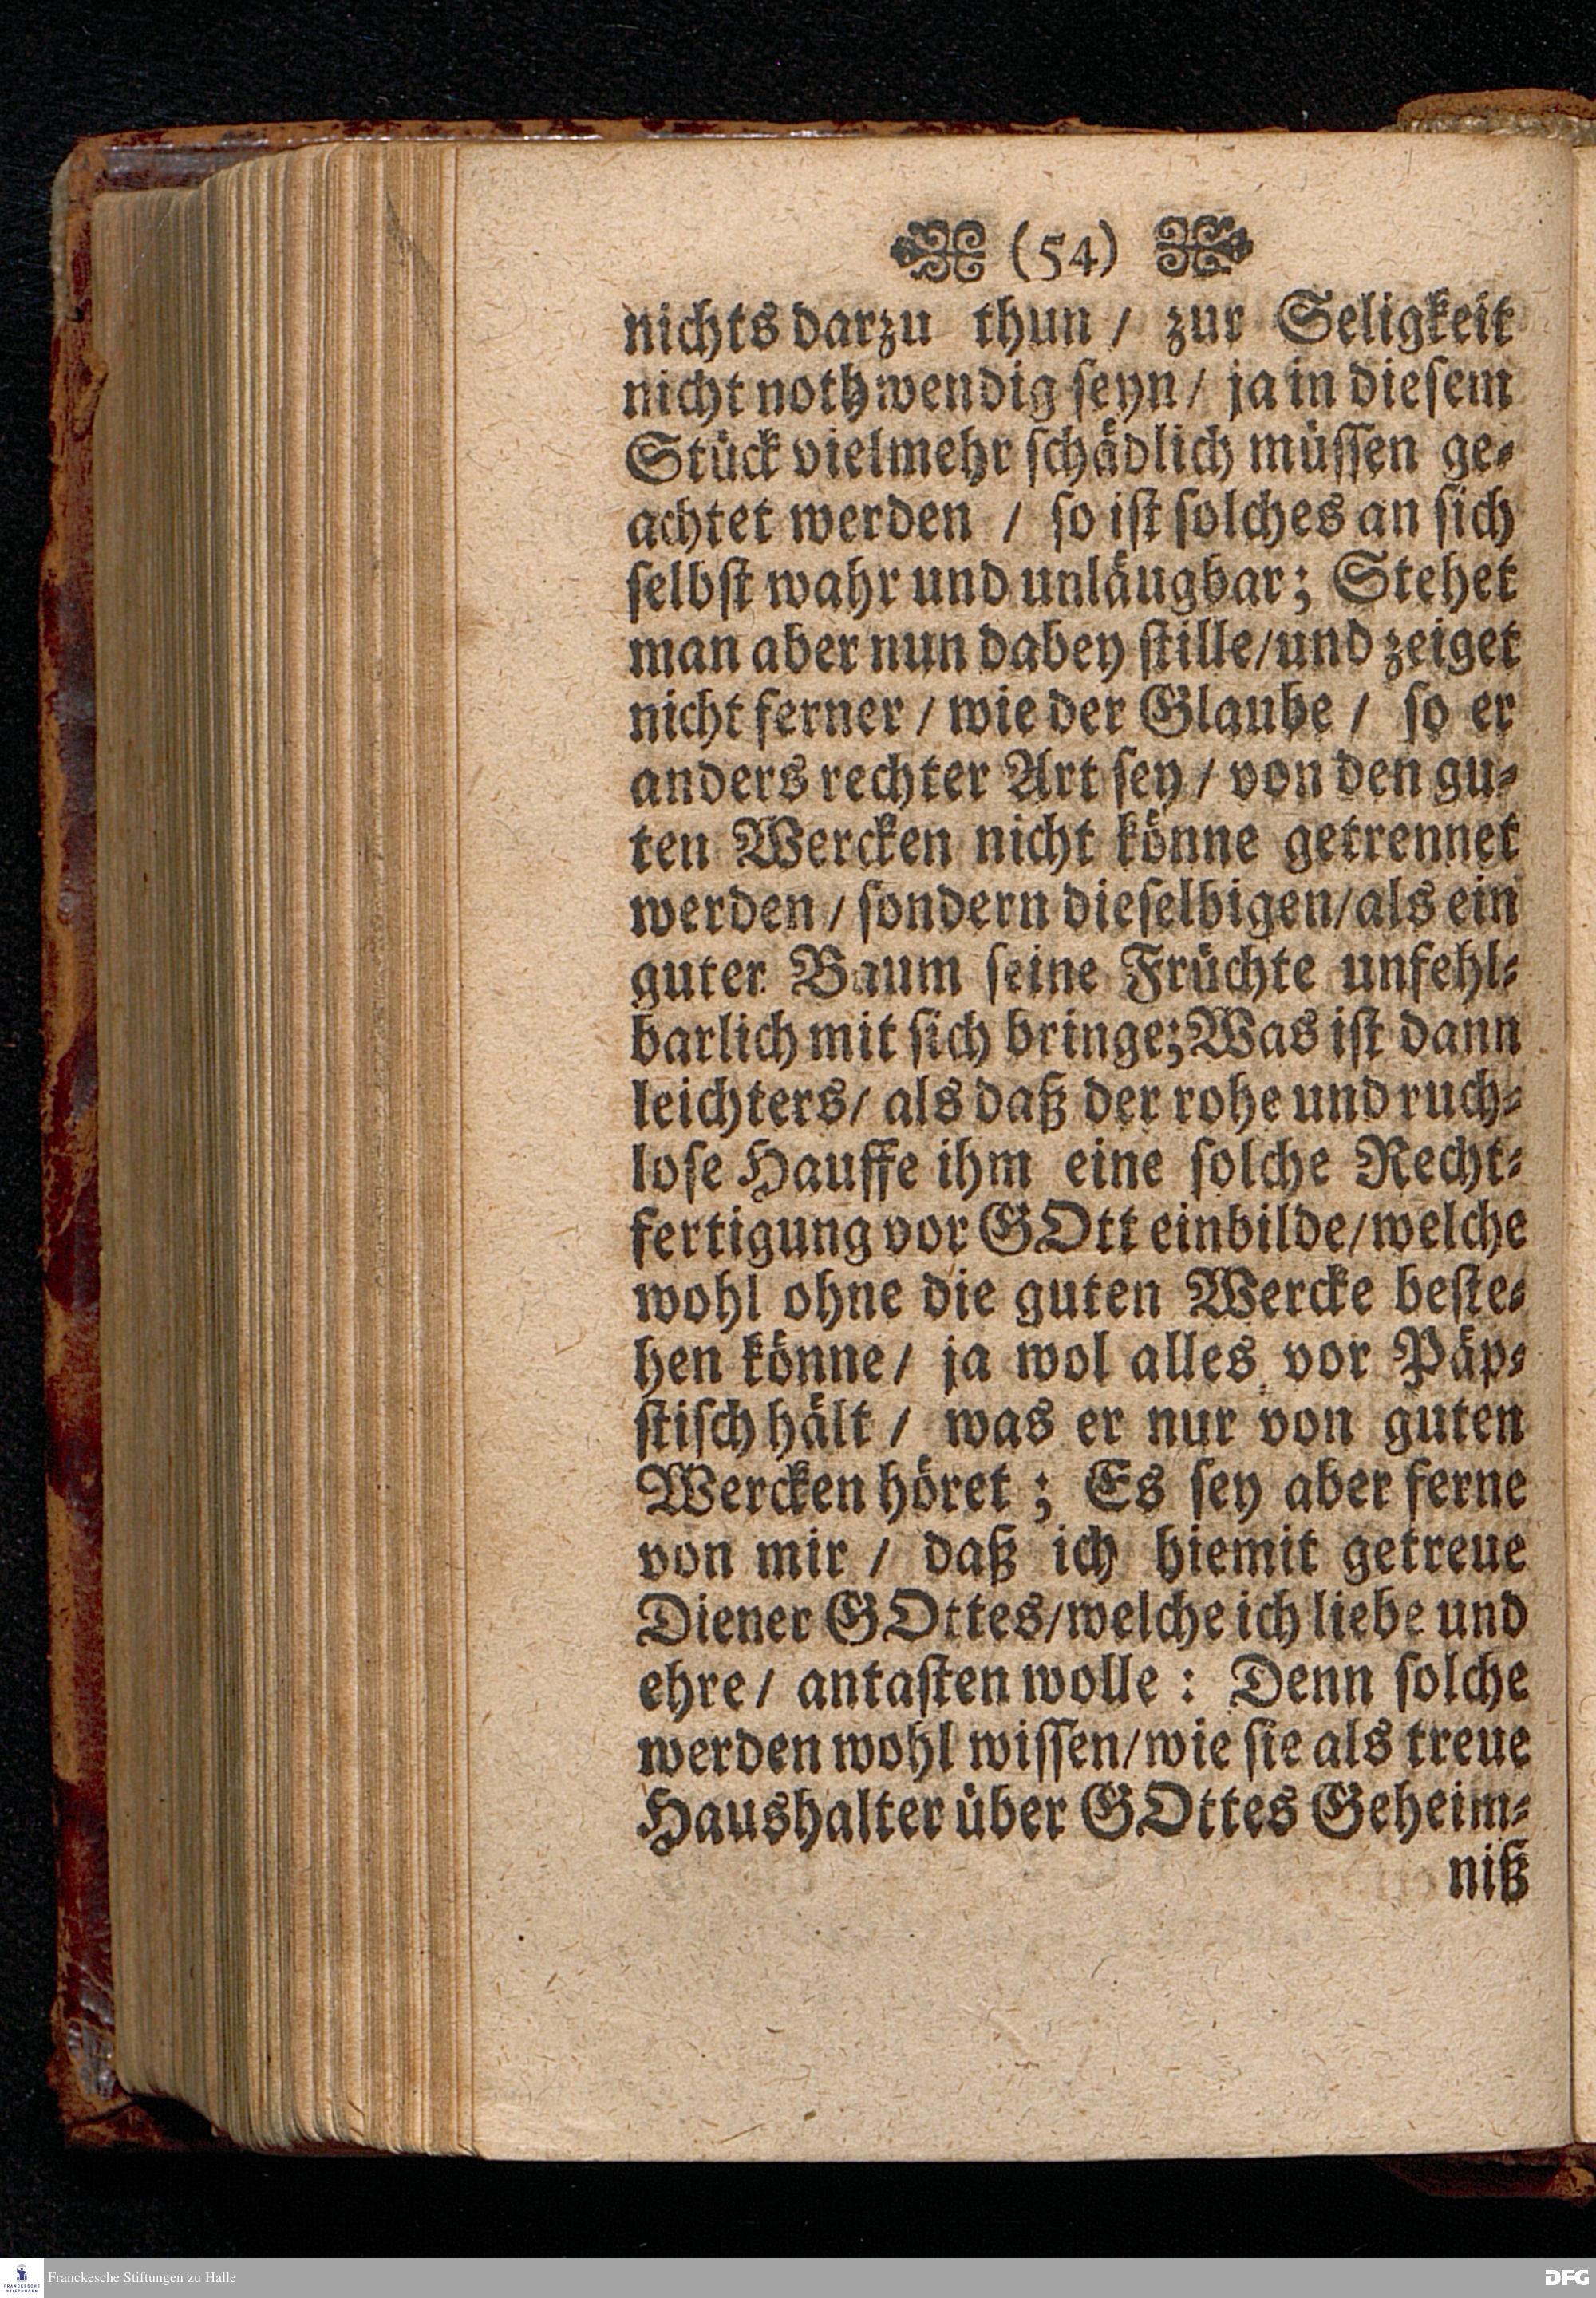 (54)
nichts darzu thun / zur Seligkeit
nicht nothwendig seyn / ja in diesem
Stück vielmehr schädlich müssen ge-
achtet werden / so ist solches an sich
selbst wahr und unläugbar; Stehet
man aber nun dabey stille/und zeiget
nicht ferner / wie der Glaube / so er
anders rechter Art sey / von den gu-
ten Wercken nicht könne getrennet
werden / sondern dieselbigen/als ein
guter Baum seine Früchte unfehl-
barlich mit sich bringe;Was ist dann
leichters/ als daß der rohe und ruch-
lose Hauffe ihm eine solche Recht-
fertigung vor GOtt einbilde/welche
wohl ohne die guten Wercke beste-
hen könne/ ja wol alles vor Päp-
stisch hält / was er nur von guten
Wercken höret ; Es sey aber ferne
von mir / daß ich hiemit getreue
Diener GOttes/welche ich liebe und
ehre / antasten wolle : Denn solche
werden wohl wissen/wie sie als treue
Haushalter über GOttes Geheim-
niß
Franckesche Stiftungen zu Halle
FRANCKESCHE STIFTUNGEN
DFG